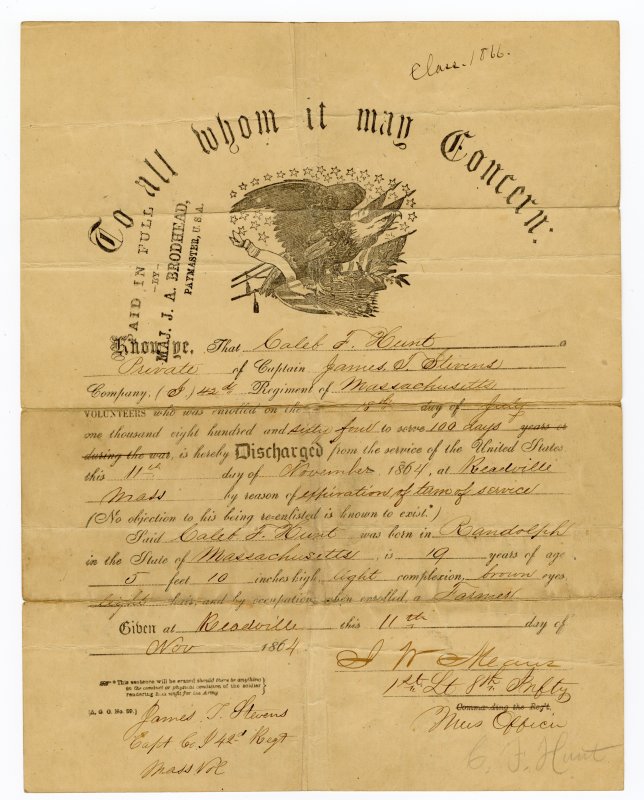 Class. 1866.
To all whom it may Concern:
PAID IN FULL
—BY—
MAJ. J. A. BRODHEAD,
PAYMASTER, U.S.A.
Know ye, That Caleb F. Hunt a
Private of Captain James T. Stevens
Company, (I,) 42d Regiment of Massachusetts
VOLUNTEERS who was enrolled on the day of July
one thousand eight hundred and sixty four to serve 100 days years or
during the war, is hereby Discharged from the service of the United States
this 11th day of November, 1864, at Readville
Mass by reason of expiration of term of service
(No objection to his being re-enlisted is known to exist.*)
Said Caleb F. Hunt was born in Randolph
in the State of Massachusetts, is 19 years of age,
5 feet 10 inches high, light complexion, brown eyes,
light hair, and by occupation, when enrolled, a Farmer
Given at Readville this 11th day of
Nov 1864.
* This sentence will be erased should there be anything
in the conduct or physical condition of the soldier
rendering him unfit for the Army
[A. G. O. No. 99.]
James T. Stevens
Capt Co I 42d Regt
Mass Vol
1st Lt 8th Infty
Commanding the Regt.
Mus Officer
C. F. Hunt